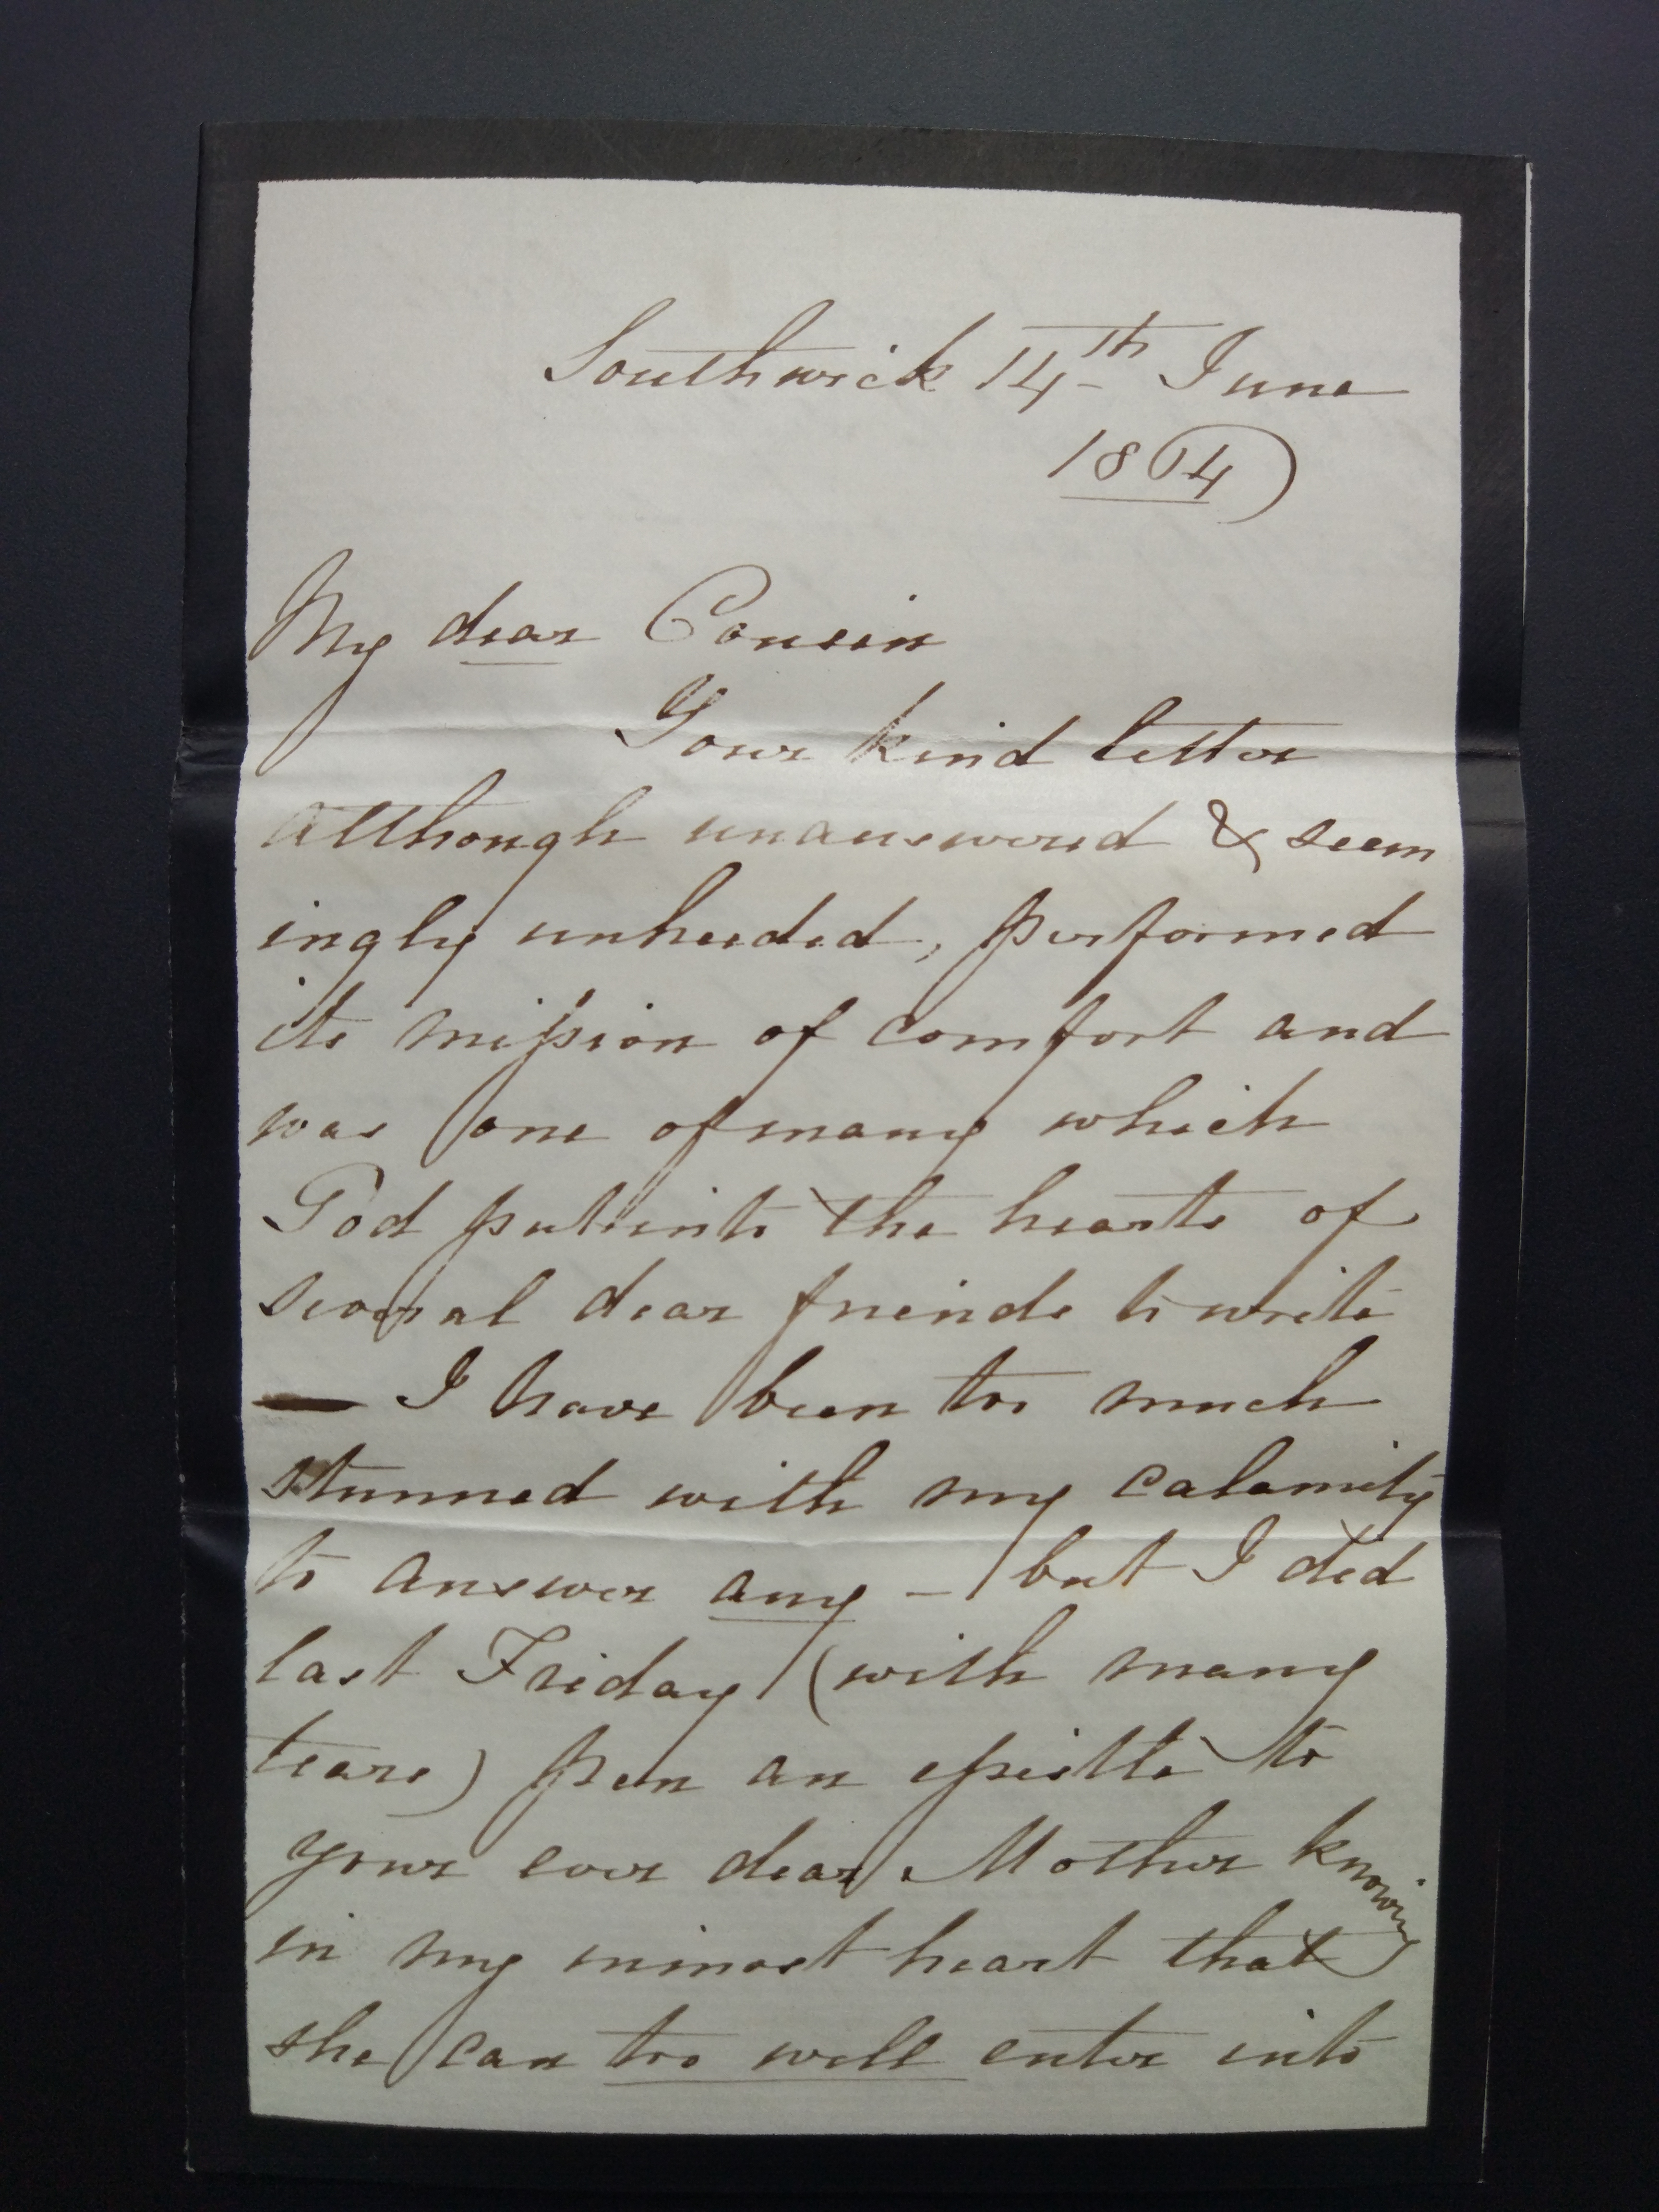 Southwick 14th June
1864
My dear Cousin
Your kind letter
although unanswered & seem
ingly unheeded, performed
its mission of comfort and
was one of many which
God put into the hearts of
several dear friends to write
— I have been too much
stunned with my calamity
to answer any – but I did
last Friday (with many
tears) pen an epistle to
your ever dear Mother knowing
in my inmost heart that
she can too well enter into